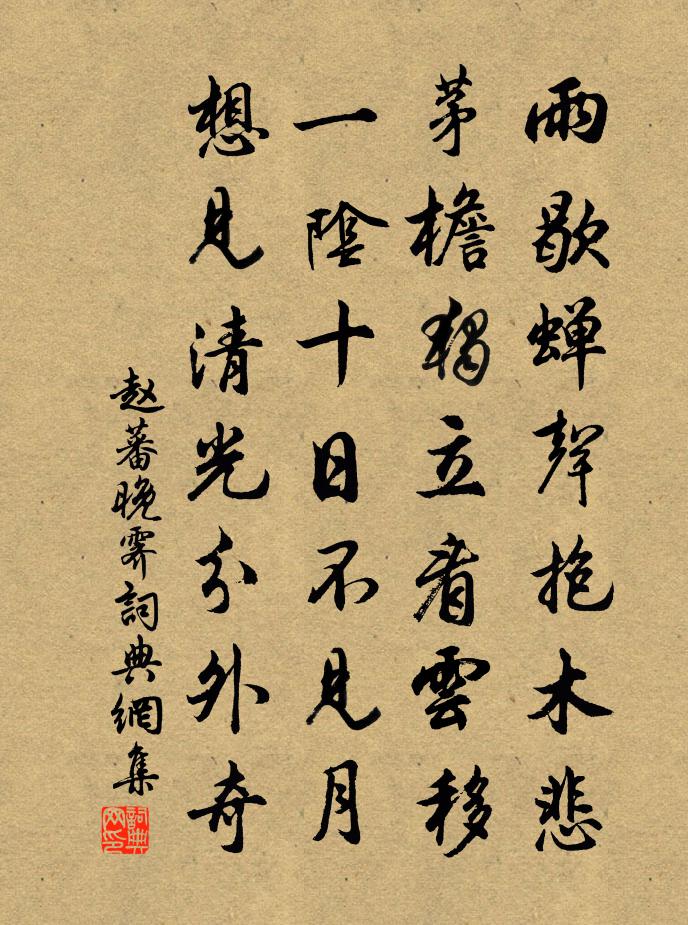 雨歇蟬聲抱木悲
茅檐獨立看雲移
一陰十日不見月
想見清光分外奇
赵蕃晚霽詞典網集
詞典网印